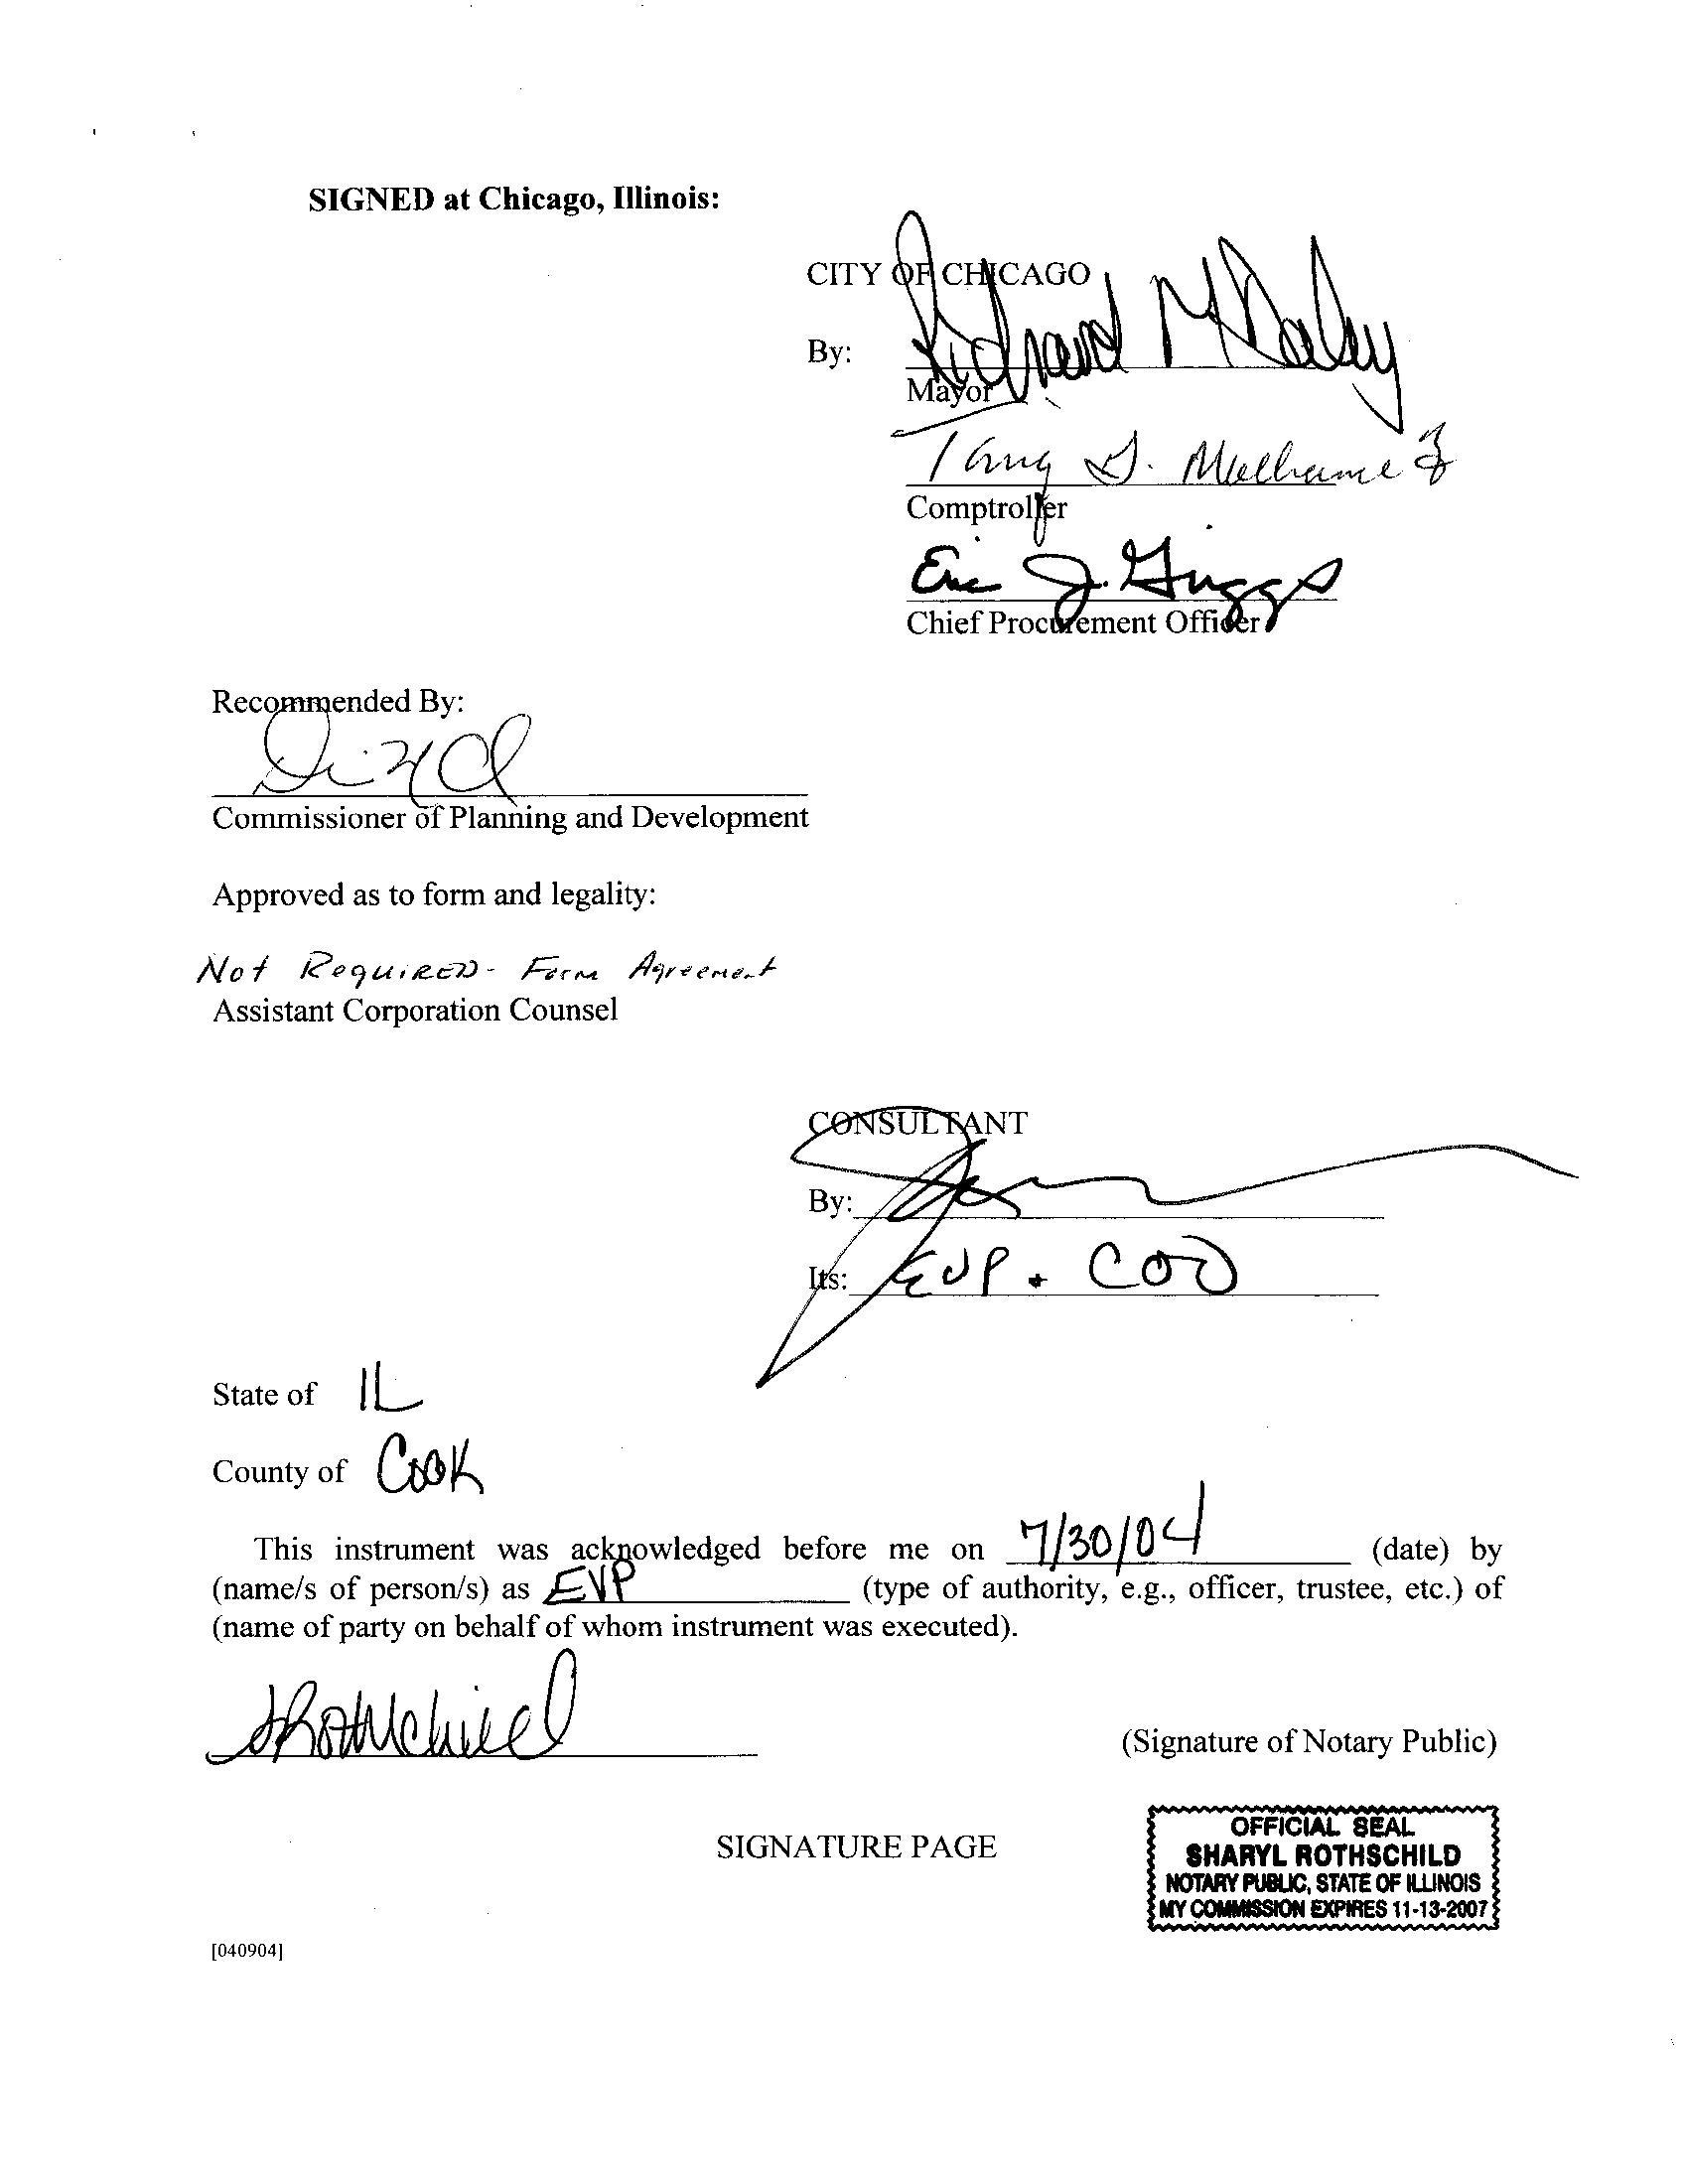 SIGNED at Chicago, Illinois:
CITY OF CHICAGO
By: Richard M Daley
Mayor
D.
Comptroller
Eric J. Griggs
Chief Procurement Officer
Recommended By:
Commissioner of Planning and Development
Approved as to form and legality:
Not Required - Form Agreement
Assistant Corporation Counsel
CONSULTANT
By:
Its: EVP + COO
State of IL
County of Cook
This instrument was acknowledged before me on 7/30/04 (date) by
(name/s of person/s) as EVP (type of authority, e.g., officer, trustee, etc.) of
(name of party on behalf of whom instrument was executed).
SRothschild
(Signature of Notary Public)
SIGNATURE PAGE
OFFICIAL SEAL
SHARYL ROTHSCHILD
NOTARY PUBLIC, STATE OF ILLINOIS
MY COMMISSION EXPIRES 11-13-2007
[040904]